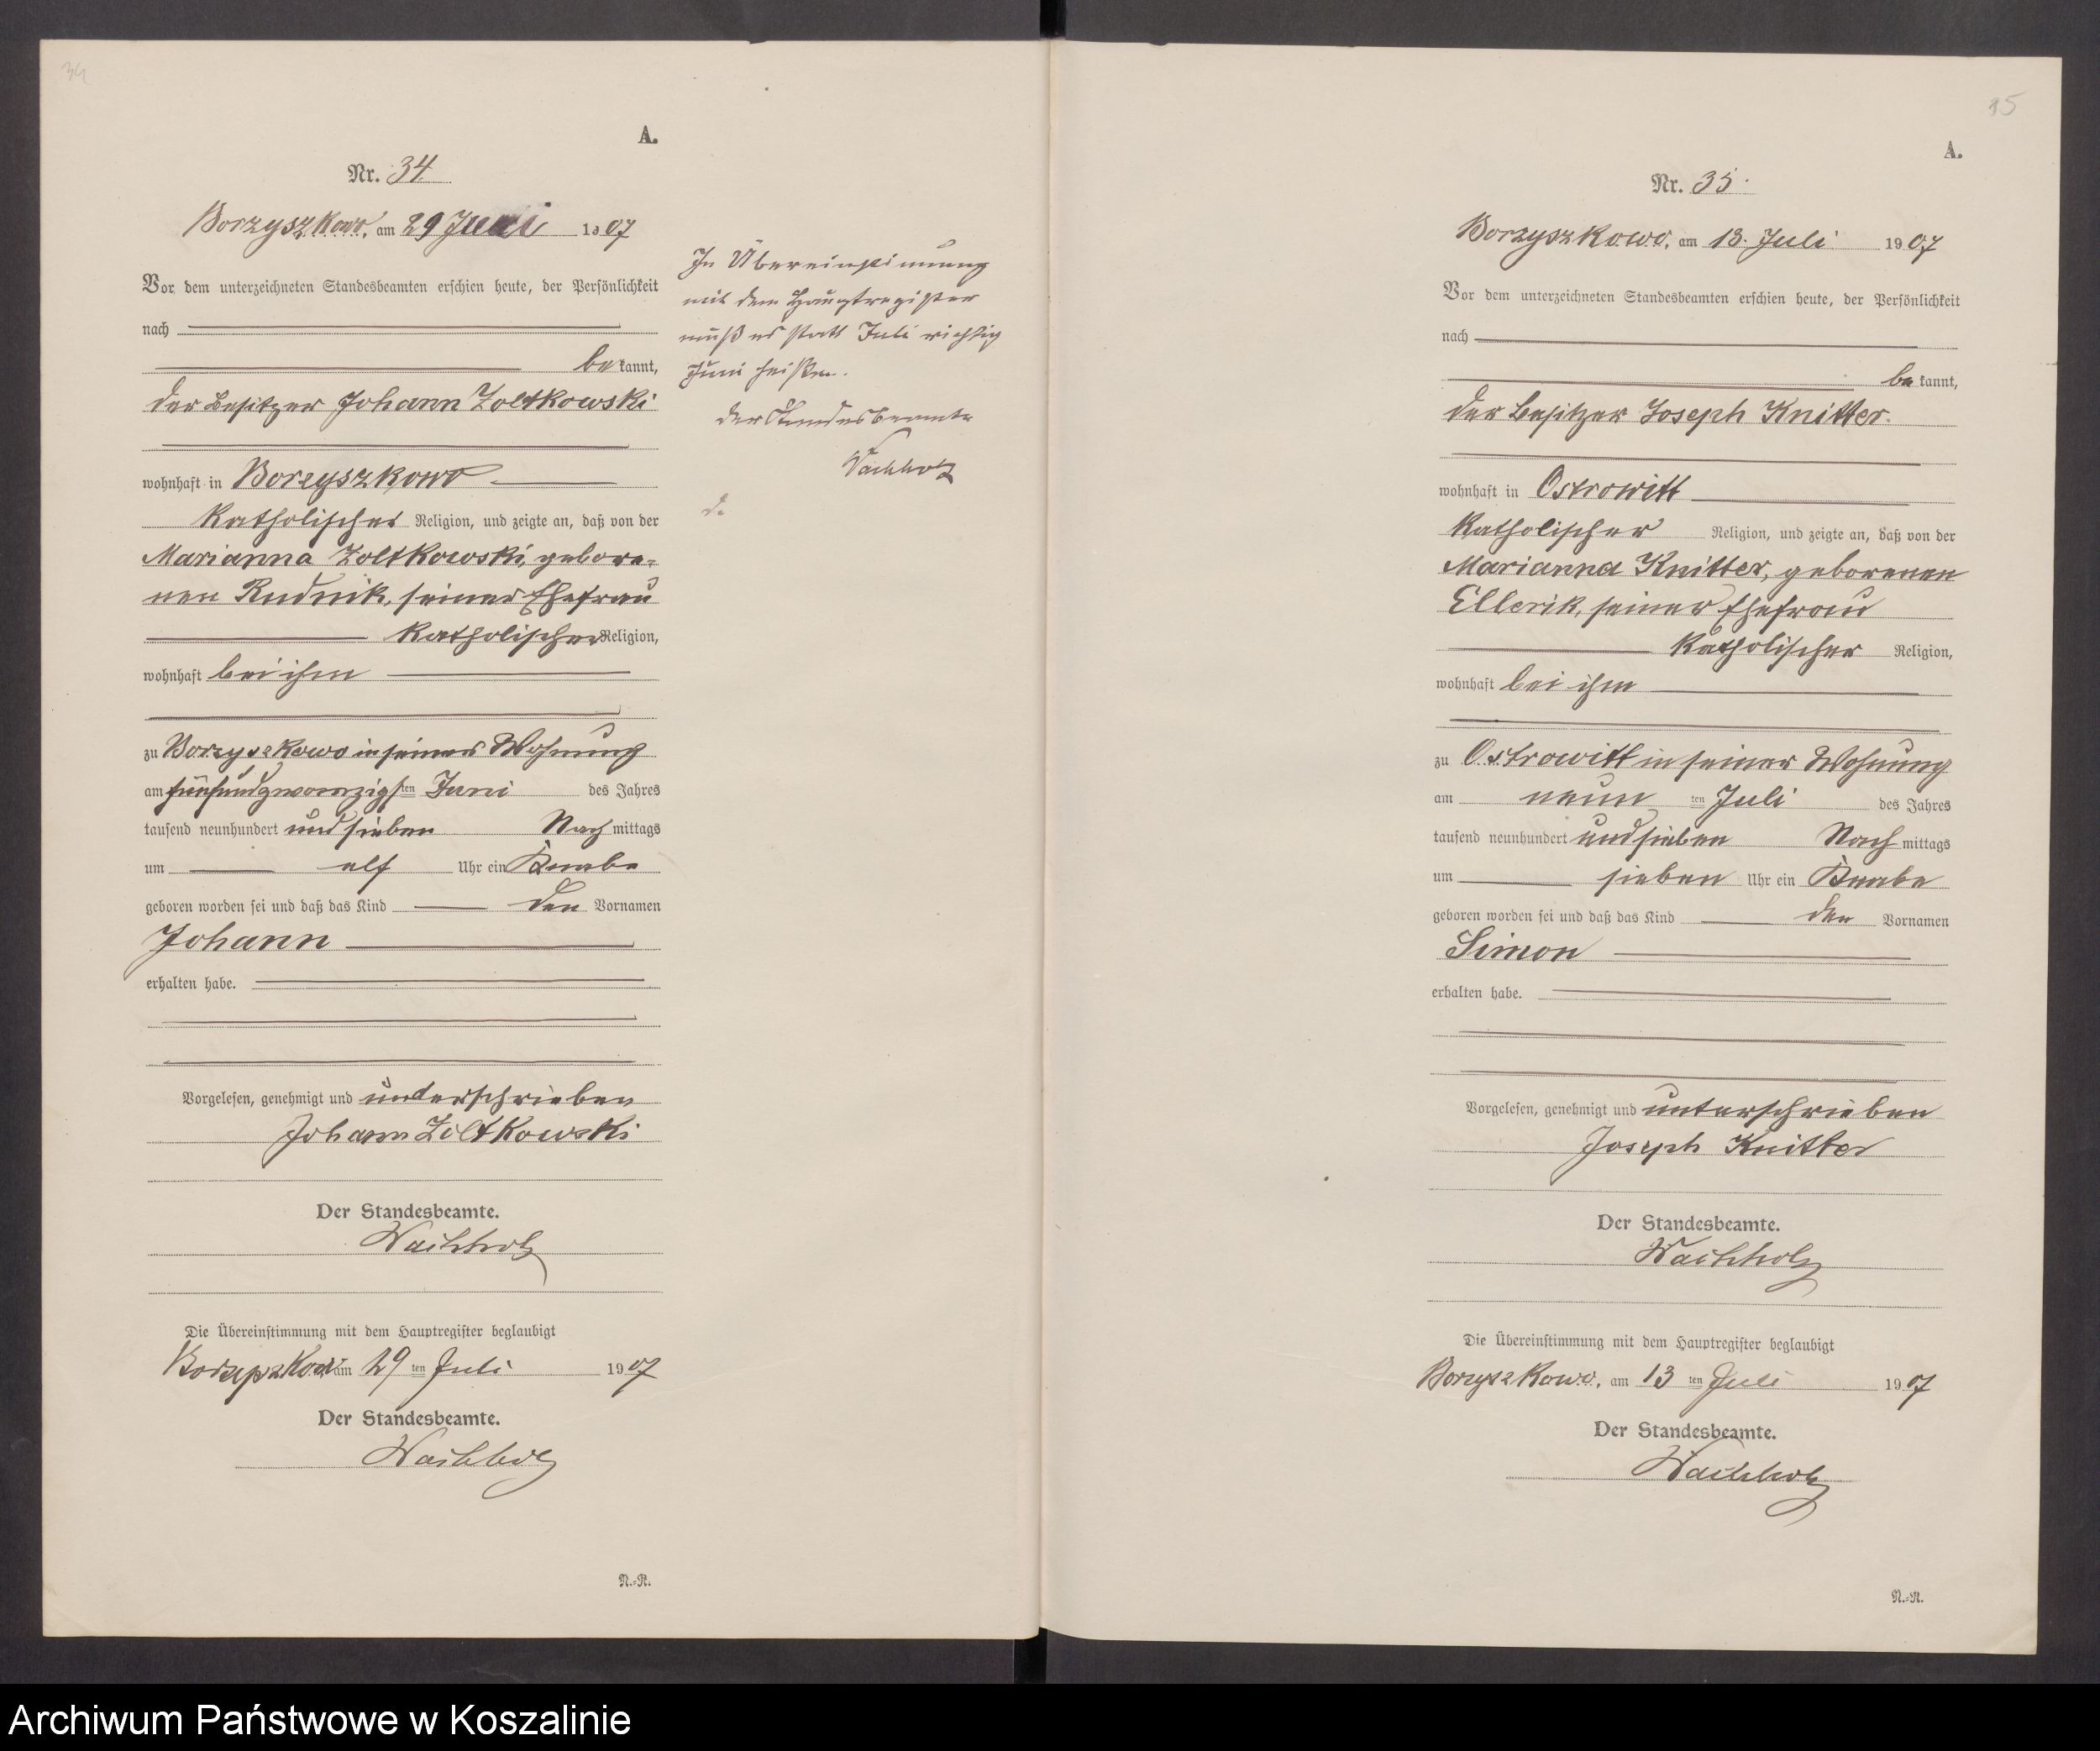 34
A.
Nr. 34
Borzyszkowo, am 29 Juni 1907
Vor dem unterzeichneten Standesbeamten erschien heute, der Persönlichkeit
nach
be kannt,
der Besitzer Johann Zoltkowski
wohnhaft in Borzyszkowo
katholischer Religion, und zeigte an, daß von der
Marianna Zoltkowski, gebore-
nen Rudnik, seiner Ehefrau
katholischer Religion,
wohnhaft bei ihm
zu Borzyszkowo in seiner Wohnung
am fünfundzwanzigsten Juni des Jahres
tausend neunhundert und sieben Nach mittags
um elf Uhr ein Knabe
geboren worden sei und daß das Kind den Vornamen
Johann
erhalten habe.
Vorgelesen, genehmigt und unterschrieben
Johann Zoltkowski
Der Standesbeamte.
Wachholz
Die Übereinstimmung mit dem Hauptregister beglaubigt
Borzyszkowo am 29 ten Juli 1907
Der Standesbeamte.
Wachholz
N.-R.
In Übereinstimmung
mit dem Hauptregister
muß es statt Juli richtig
Juni heißen.
Der Standesbeamte
Wachholz
35
A.
Nr. 35.
Borzyszkowo, am 13. Juli 1907
Vor dem unterzeichneten Standesbeamten erschien heute, der Persönlichkeit
nach
be kannt,
der Besitzer Joseph Knitter.
wohnhaft in Ostrowitt
katholischer Religion, und zeigte an, daß von der
Marianna Knitter, geborenen
Ellerik, seiner Ehefrau
katholischer Religion,
wohnhaft bei ihm
zu Ostrowitt in seiner Wohnung
am neun ten Juli des Jahres
tausend neunhundert und sieben Nach mittags
um sieben Uhr ein Knabe
geboren worden sei und daß das Kind den Vornamen
Simon
erhalten habe.
Vorgelesen, genehmigt und unterschrieben
Joseph Knitter
Der Standesbeamte.
Wachholz
Die Übereinstimmung mit dem Hauptregister beglaubigt
Borzyszkowo, am 13 ten Juli 1907
Der Standesbeamte.
Wachholz
N.-R.
Archiwum Państwowe w Koszalinie